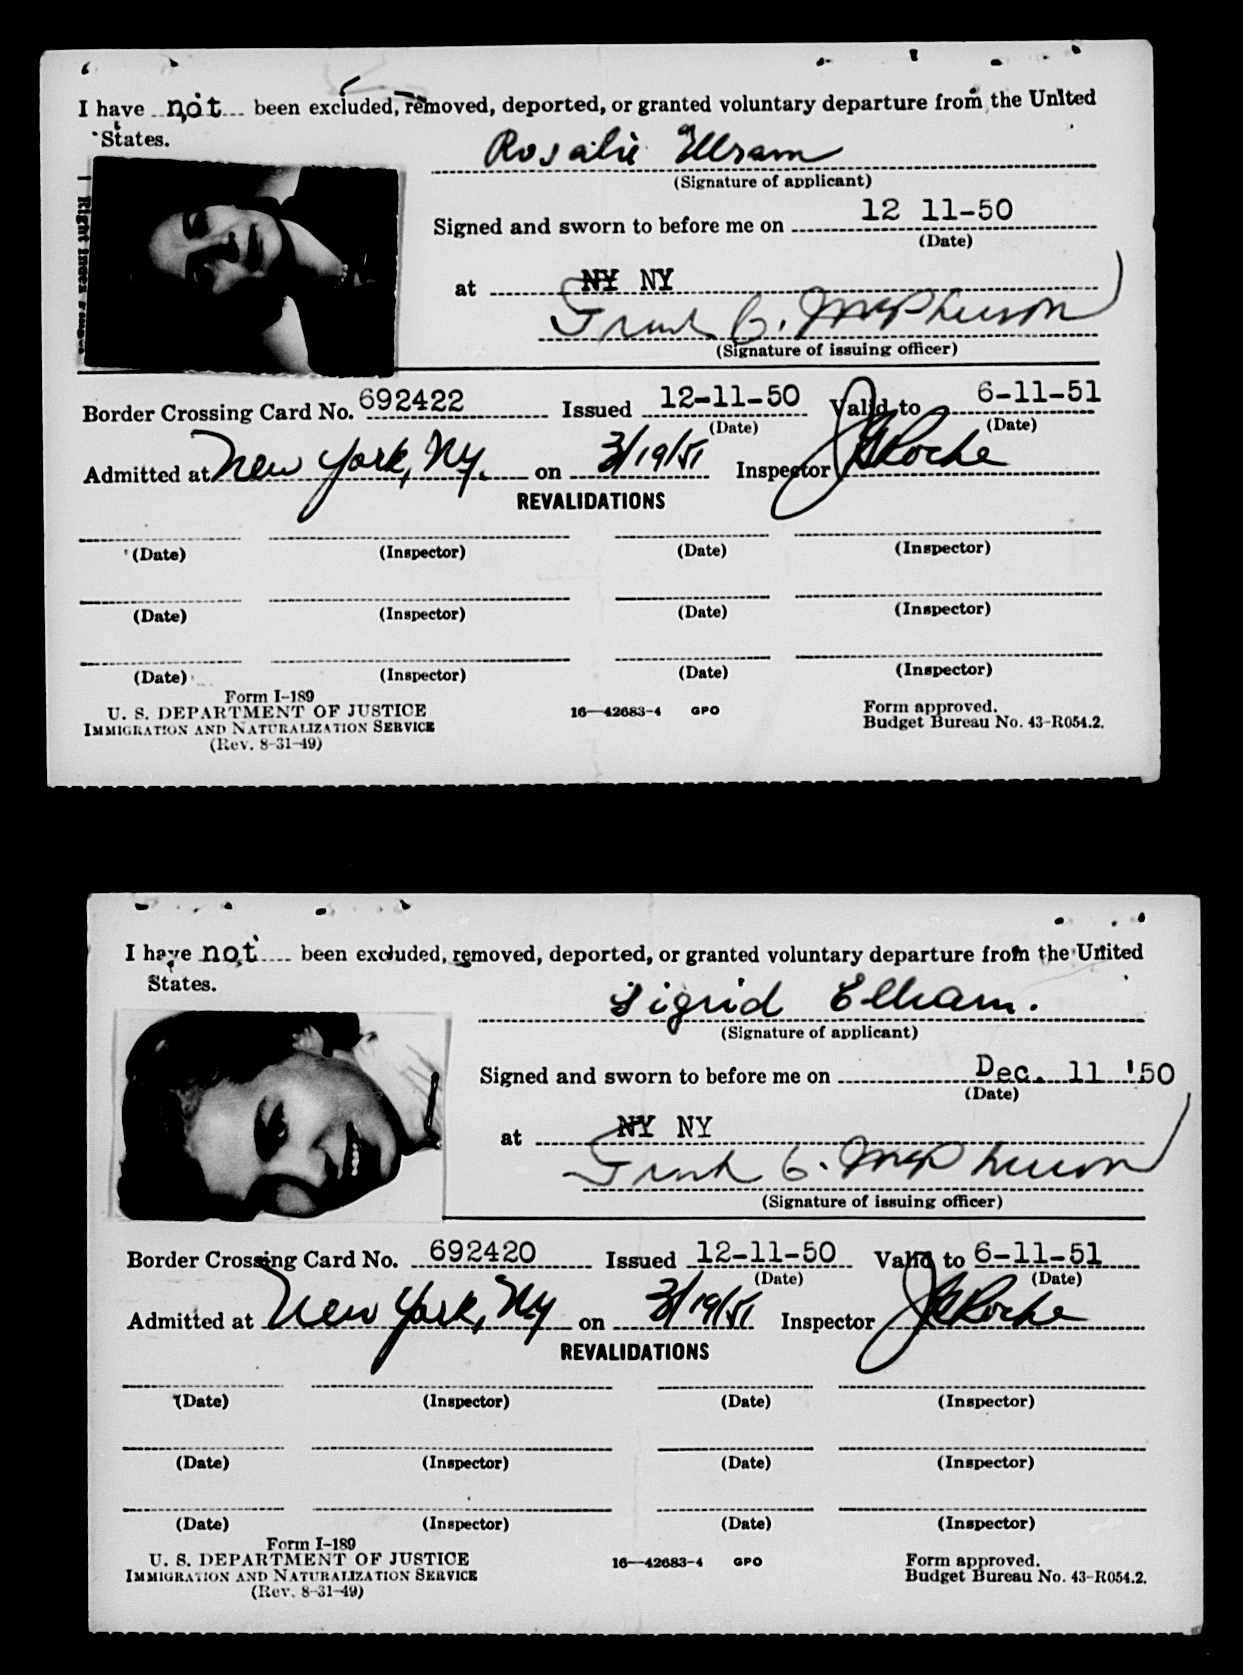 I have not been excluded, removed, deported, or granted voluntary departure from the United
States.
Rosalie Ellram
(Signature of applicant)
Signed and sworn to before me on 12 11-50
(Date)
at NY NY
Frank G. McPherson
(Signature of issuing officer)
Border Crossing Card No. 692422 Issued 12-11-50 Valid to 6-11-51
(Date) (Date)
Admitted at New York, Ny. on 3/19/51 Inspector JG Roche
REVALIDATIONS
(Date) (Inspector) (Date) (Inspector)
(Date) (Inspector) (Date) (Inspector)
(Date) (Inspector) (Date) (Inspector)
Form I-189
U. S. DEPARTMENT OF JUSTICE
IMMIGRATION AND NATURALIZATION SERVICE
(Rev. 8-31-49)
16—42683-4 GPO
Form approved.
Budget Bureau No. 43-R054.2.
I have not been excluded, removed, deported, or granted voluntary departure from the United
States.
Sigrid Ellram.
(Signature of applicant)
Signed and sworn to before me on Dec. 11 '50
(Date)
at NY NY
Frank G. McPherson
(Signature of issuing officer)
Border Crossing Card No. 692420 Issued 12-11-50 Valid to 6-11-51
(Date) (Date)
Admitted at New York, Ny on 3/19/51 Inspector JG Roche
REVALIDATIONS
(Date) (Inspector) (Date) (Inspector)
(Date) (Inspector) (Date) (Inspector)
(Date) (Inspector) (Date) (Inspector)
Form I-189
U. S. DEPARTMENT OF JUSTICE
IMMIGRATION AND NATURALIZATION SERVICE
(Rev. 8-31-49)
16—42683-4 GPO
Form approved.
Budget Bureau No. 43-R054.2.